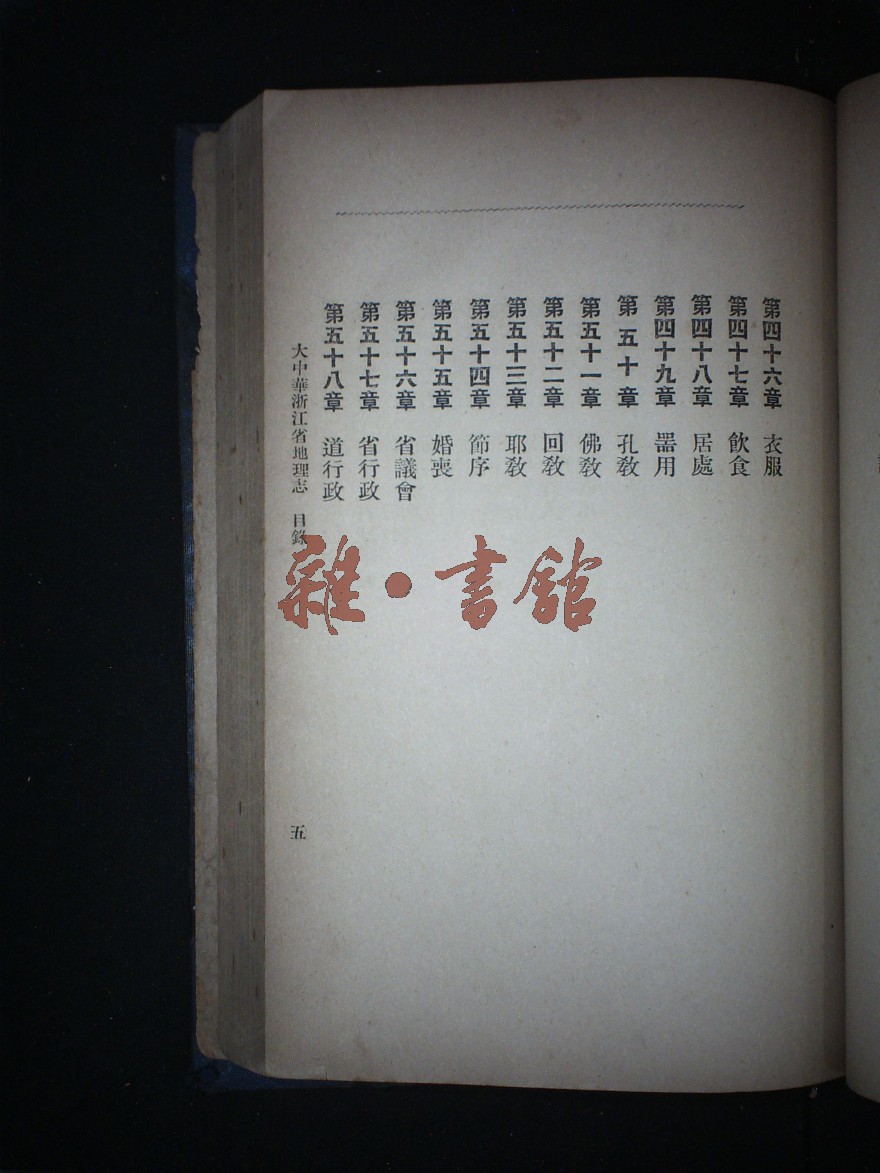 第四十六章 衣服
第四十七章 飲食
第四十八章 居處
第四十九章 器用
第五十章 孔敎
第五十一章 佛敎
第五十二章 回敎
第五十三章 耶敎
第五十四章 節序
第五十五章 婚喪
第五十六章 省議會
第五十七章 省行政
第五十八章 道行政
大中華浙江省地理志 目錄 五
雜·書館